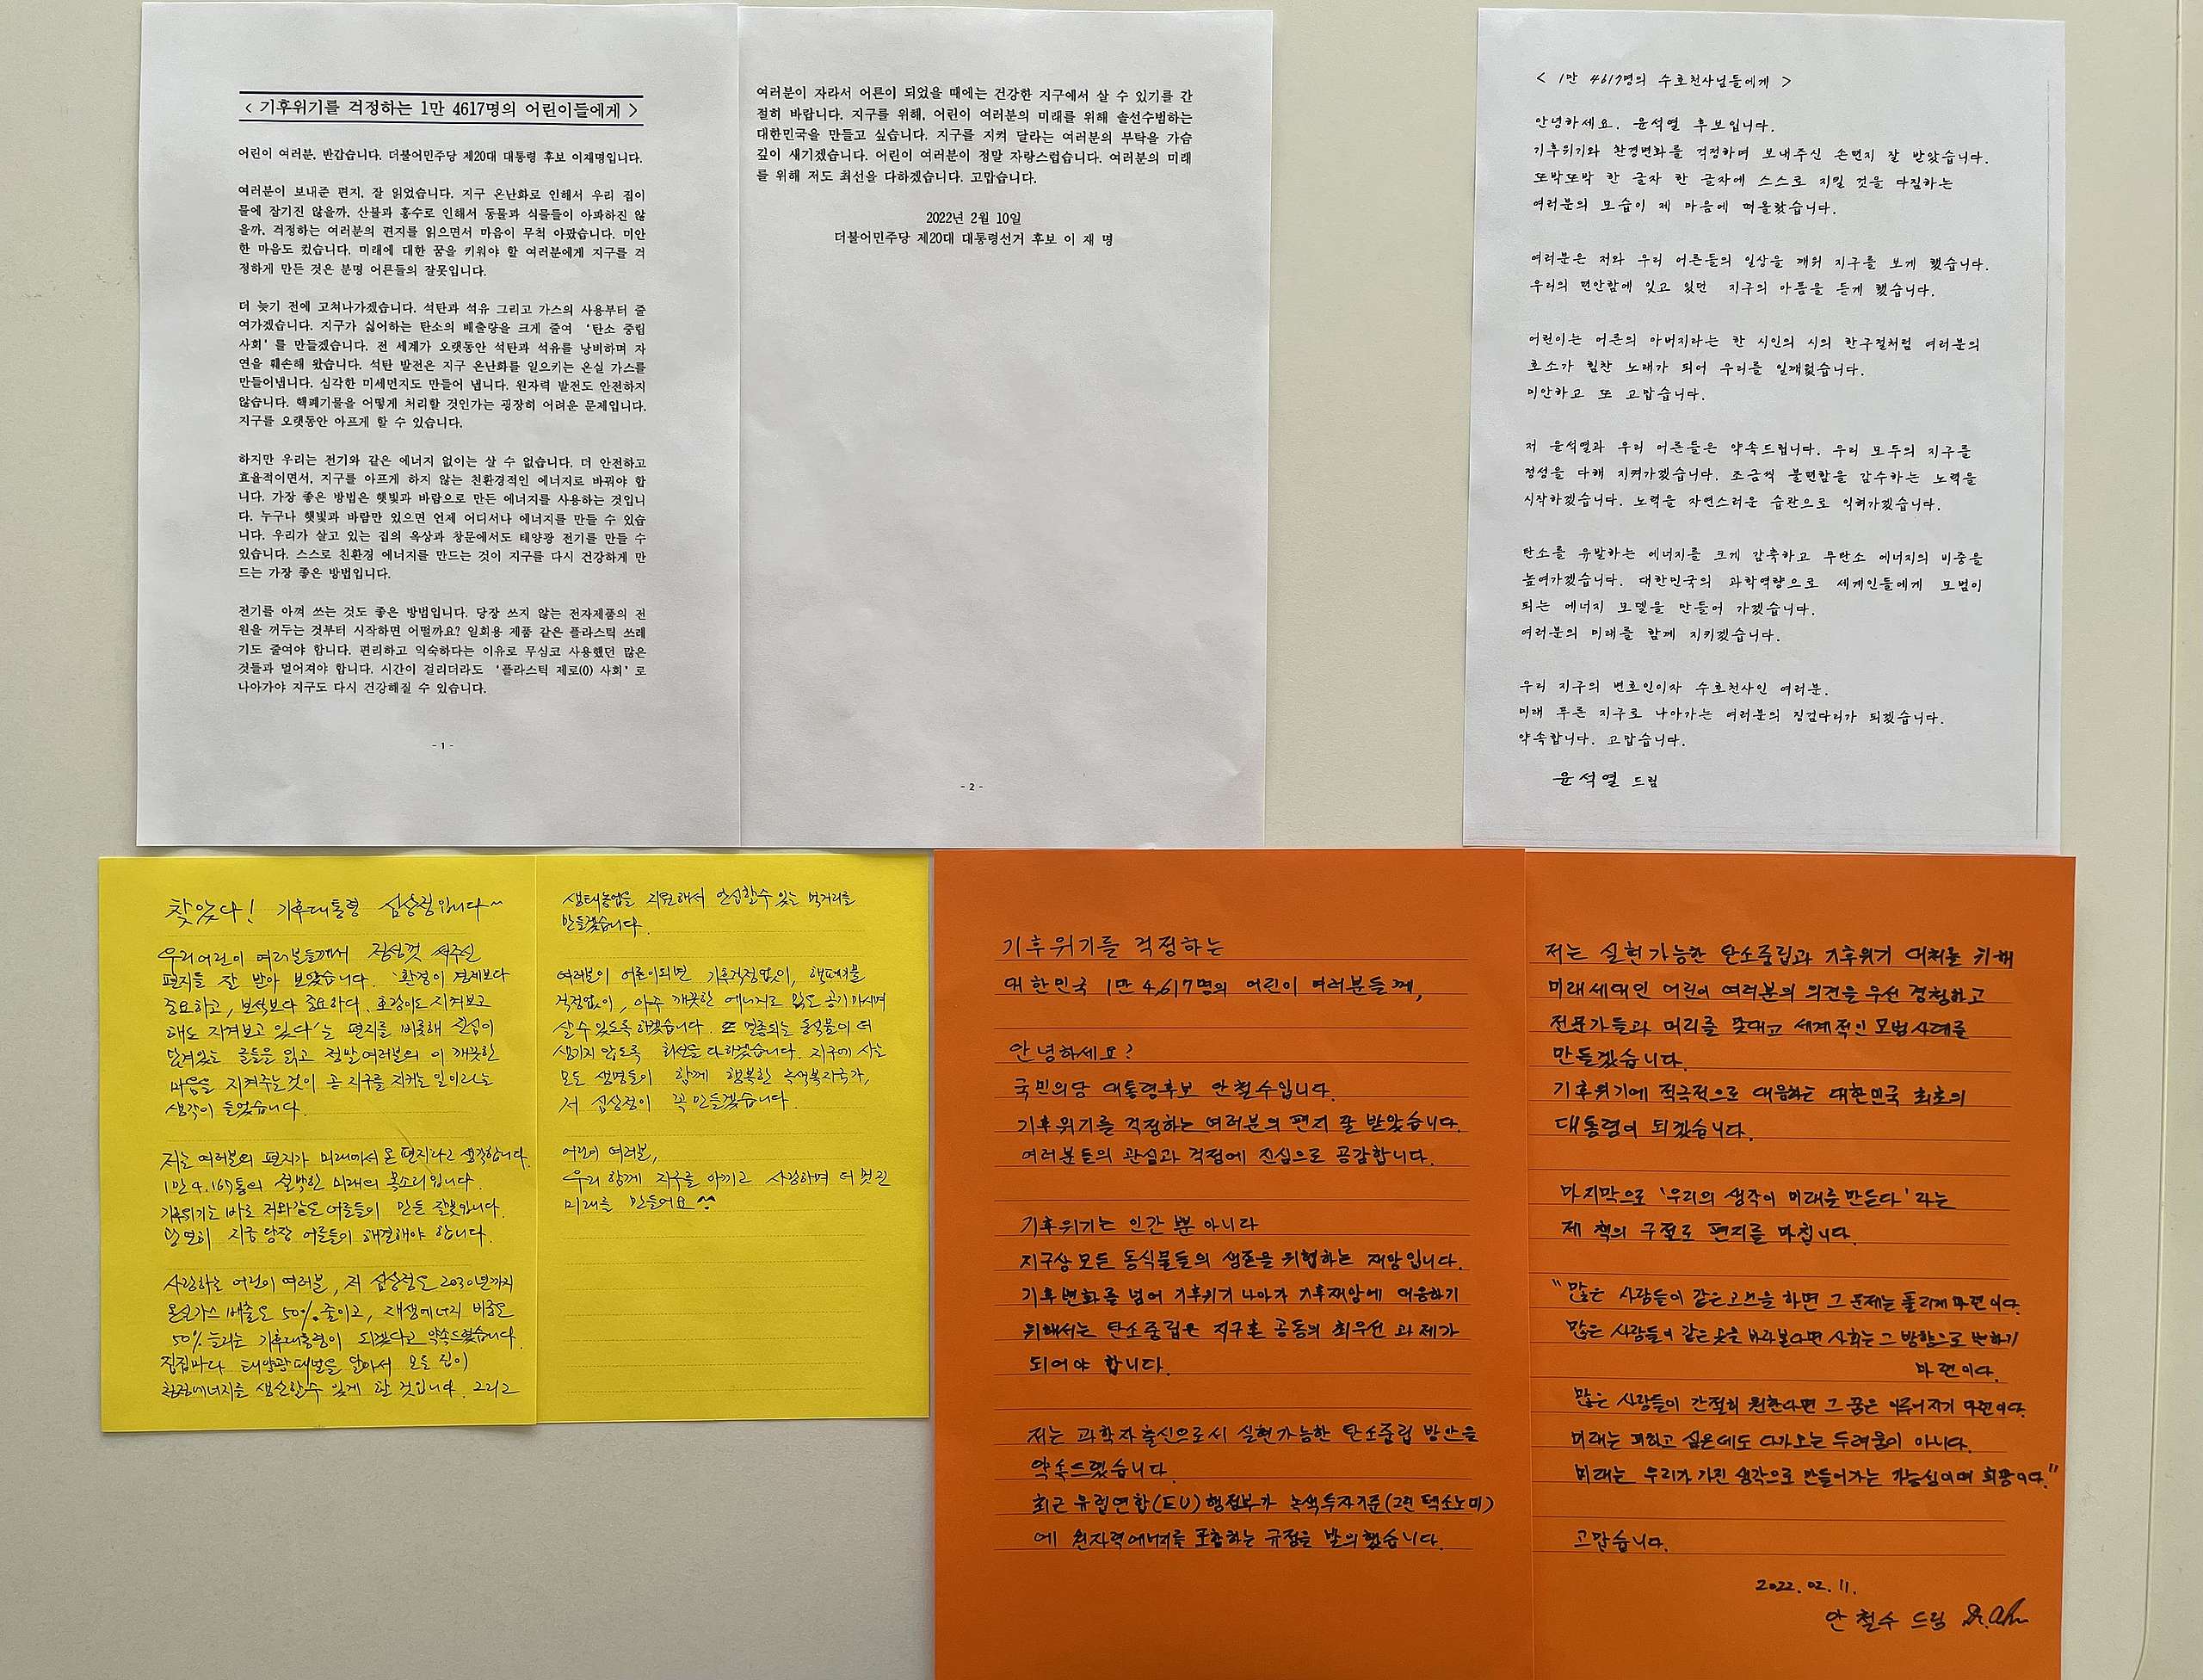 < 기후위기를 걱정하는 1만 4617명의 어린이들에게 >
어린이 여러분, 반갑습니다. 더불어민주당 제20대 대통령 후보 이재명입니다.
여러분이 보내준 편지, 잘 읽었습니다. 지구 온난화로 인해서 우리 집이
물에 잠기진 않을까, 산불과 홍수로 인해서 동물과 식물들이 아파하진 않
을까, 걱정하는 여러분의 편지를 읽으면서 마음이 무척 아팠습니다. 미안
한 마음도 컸습니다. 미래에 대한 꿈을 키워야 할 여러분에게 지구를 걱
정하게 만든 것은 분명 어른들의 잘못입니다.
더 늦기 전에 고쳐나가겠습니다. 석탄과 석유 그리고 가스의 사용부터 줄
여가겠습니다. 지구가 싫어하는 탄소의 배출량을 크게 줄여 '탄소 중립
사회'를 만들겠습니다. 전 세계가 오랫동안 석탄과 석유를 낭비하며 자
연을 훼손해 왔습니다. 석탄 발전은 지구 온난화를 일으키는 온실 가스를
만들어냅니다. 심각한 미세먼지도 만들어 냅니다. 원자력 발전도 안전하지
않습니다. 핵폐기물을 어떻게 처리할 것인가는 굉장히 어려운 문제입니다.
지구를 오랫동안 아프게 할 수 있습니다.
하지만 우리는 전기와 같은 에너지 없이는 살 수 없습니다. 더 안전하고
효율적이면서, 지구를 아프게 하지 않는 친환경적인 에너지로 바꿔야 합
니다. 가장 좋은 방법은 햇빛과 바람으로 만든 에너지를 사용하는 것입니
다. 누구나 햇빛과 바람만 있으면 언제 어디서나 에너지를 만들 수 있습
니다. 우리가 살고 있는 집의 옥상과 창문에서도 태양광 전기를 만들 수
있습니다. 스스로 친환경 에너지를 만드는 것이 지구를 다시 건강하게 만
드는 가장 좋은 방법입니다.
전기를 아껴 쓰는 것도 좋은 방법입니다. 당장 쓰지 않는 전자제품의 전
원을 꺼두는 것부터 시작하면 어떨까요? 일회용 제품 같은 플라스틱 쓰레
기도 줄여야 합니다. 편리하고 익숙하다는 이유로 무심코 사용했던 많은
것들과 멀어져야 합니다. 시간이 걸리더라도 '플라스틱 제로(0) 사회'로
나아가야 지구도 다시 건강해질 수 있습니다.
- 1 -
여러분이 자라서 어른이 되었을 때에는 건강한 지구에서 살 수 있기를 간
절히 바랍니다. 지구를 위해, 어린이 여러분의 미래를 위해 솔선수범하는
대한민국을 만들고 싶습니다. 지구를 지켜 달라는 여러분의 부탁을 가슴
깊이 새기겠습니다. 어린이 여러분이 정말 자랑스럽습니다. 여러분의 미래
를 위해 저도 최선을 다하겠습니다. 고맙습니다.
2022년 2월 10일
더불어민주당 제20대 대통령선거 후보 이 재 명
- 2 -
< 1만 4617명의 수호천사님들에게 >
안녕하세요. 윤석열 후보입니다.
기후위기와 환경변화를 걱정하며 보내주신 손편지 잘 받았습니다.
또박또박 한 글자 한 글자에 스스로 지킬 것을 다짐하는
여러분의 모습이 제 마음에 떠올랐습니다.
여러분은 저와 우리 어른들의 일상을 깨워 지구를 보게 했습니다.
우리의 편안함에 잊고 있던 지구의 아픔을 듣게 했습니다.
어린이는 어른의 아버지라는 한 시인의 시의 한구절처럼 여러분의
호소가 힘찬 노래가 되어 우리를 일깨웠습니다.
미안하고 또 고맙습니다.
저 윤석열과 우리 어른들은 약속드립니다. 우리 모두의 지구를
정성을 다해 지켜가겠습니다. 조금씩 불편함을 감수하는 노력을
시작하겠습니다. 노력을 자연스러운 습관으로 익혀가겠습니다.
탄소를 유발하는 에너지를 크게 감축하고 무탄소 에너지의 비중을
높여가겠습니다. 대한민국의 과학역량으로 세계인들에게 모범이
되는 에너지 모델을 만들어 가겠습니다.
여러분의 미래를 함께 지키겠습니다.
우리 지구의 변호인이자 수호천사인 여러분.
미래 푸른 지구로 나아가는 여러분의 징검다리가 되겠습니다.
약속합니다. 고맙습니다.
윤석열 드림
찾았다! 기후대통령 심상정입니다~
우리 어린이 여러분들께서 정성껏 써주신
편지를 잘 받아 보았습니다. '환경이 경제보다
중요하고, 보석보다 중요하다. 호랑이도 지켜보고
해도 지켜보고 있다'는 편지를 비롯해 진심이
담겨있는 글들을 읽고 정말 여러분의 이 깨끗한
마음을 지켜주는 것이 곧 지구를 지키는 일이라는
생각이 들었습니다.
저는 여러분의 편지가 미래에서 온 편지라고 생각합니다.
1만 4,167통의 절박한 미래의 목소리입니다.
기후위기는 바로 저와같은 어른들이 만든 잘못입니다.
당연히 지금 당장 어른들이 해결해야 합니다.
사랑하는 어린이 여러분, 저 심상정은 2030년까지
온실가스 배출은 50% 줄이고, 재생에너지 비중은
50% 늘리는 기후대통령이 되겠다고 약속드렸습니다.
집집마다 태양광패널을 달아서 모든 집이
청정에너지를 생산할수 있게 할 것입니다. 그리고
생태농업을 지원해서 안심할수 있는 먹거리를
만들겠습니다.
여러분이 어른이되면 기후걱정없이, 핵폐기물
걱정없이, 아주 깨끗한 에너지로 맑은 공기 마시며
살 수 있도록 하겠습니다. 또 멸종되는 동식물이 더
생기지 않도록 최선을 다하겠습니다. 지구에 사는
모든 생명들이 함께 행복한 녹색복지국가,
저 심상정이 꼭 만들겠습니다.
어린이 여러분,
우리 함께 지구를 아끼고 사랑하며 더 멋진
미래를 만들어요^^
기후위기를 걱정하는
대한민국 1만 4,617명의 어린이 여러분들께,
안녕하세요?
국민의당 대통령후보 안철수입니다.
기후위기를 걱정하는 여러분의 편지 잘 받았습니다.
여러분들의 관심과 걱정에 진심으로 공감합니다.
기후위기는 인간 뿐 아니라
지구상 모든 동식물들의 생존을 위협하는 재앙입니다.
기후변화를 넘어 기후위기 나아가 기후재앙에 대응하기
위해서는 탄소중립은 지구촌 공동의 최우선 과제가
되어야 합니다.
저는 과학자 출신으로서 실현가능한 탄소중립 방안을
약속드렸습니다.
최근 유럽연합(EU) 행정부가 녹색투자기준(그린 택소노미)
에 원자력에너지를 포함하는 규정을 발의했습니다.
저는 실현 가능한 탄소중립과 기후위기 대처를 위해
미래세대인 어린이 여러분의 의견을 우선 경청하고
전문가들과 머리를 맞대고 세계적인 모범사례를
만들겠습니다.
기후위기에 적극적으로 대응하는 대한민국 최초의
대통령이 되겠습니다.
마지막으로 '우리의 생각이 미래를 만든다'라는
제 책의 구절로 편지를 마칩니다.
"많은 사람들이 같은 고민을 하면 그 문제는 풀리게 마련이다.
많은 사람들이 같은 곳을 바라본다면 사회는 그 방향으로 변하기
마련이다.
많은 사람들이 간절히 원한다면 그 꿈은 이루어지기 마련이다.
미래는 피하고 싶은데도 다가오는 두려움이 아니다.
미래는 우리가 가진 생각으로 만들어가는 가능성이며 희망이다."
고맙습니다.
2022. 02. 11.
안철수 드림